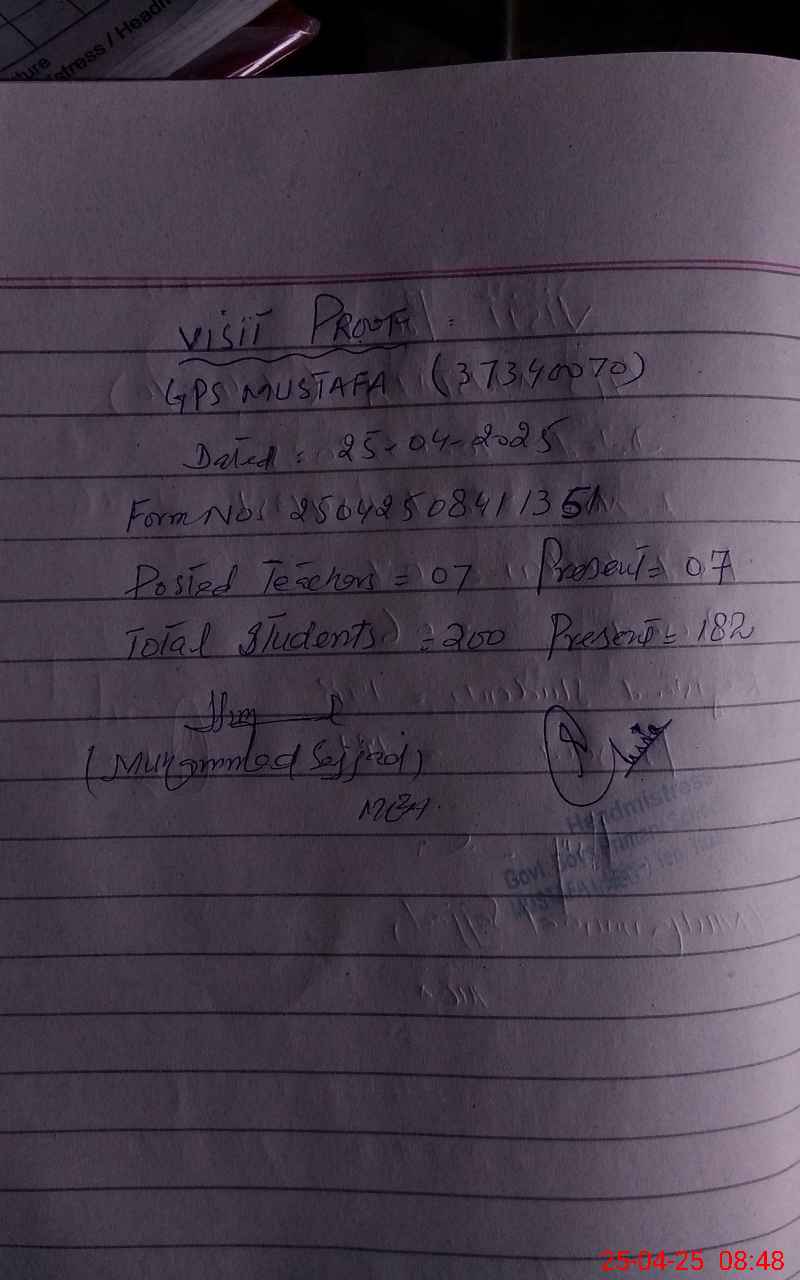 ture
stress / Headm
VISIT PROOF :
GPS MUSTAFA (37340070)
Dated : 25-04-2025
Form No: 25042508411351
Posted Teachers = 07 Present = 07
Total Students = 200 Present = 182
(Muhammad Sajjad)
MEA.
Headmistress
Govt.
25-04-25 08:48